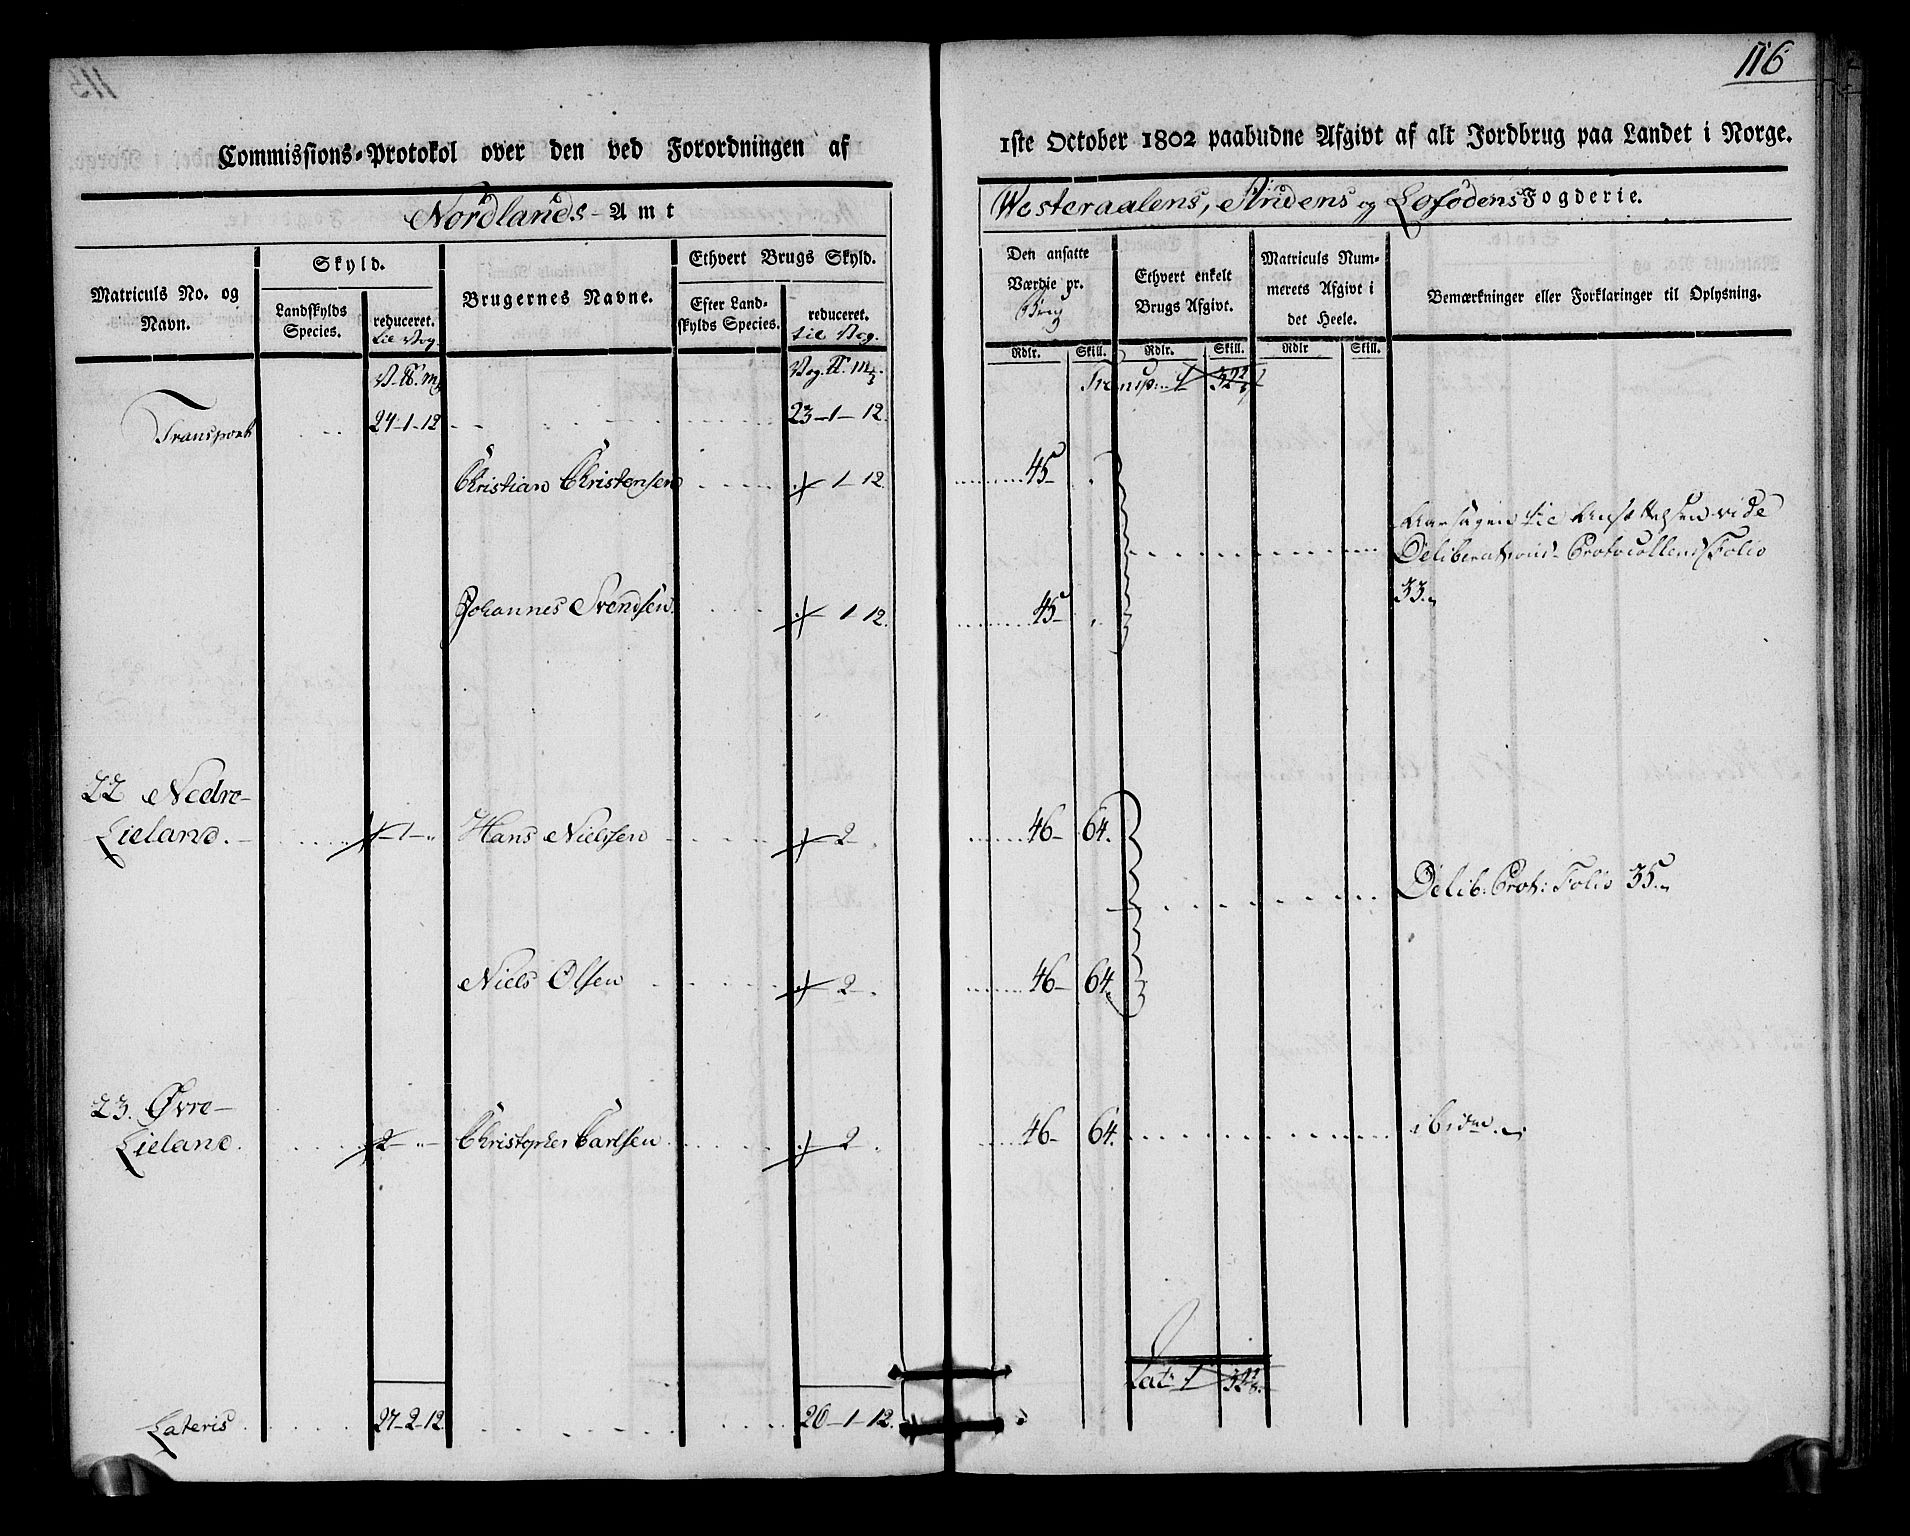 116
Commissions-Protokol over den ved Forordningen af
1ste October 1802 paabudne Afgivt af alt Jordbrug paa Landet i Norge.
Nordlands-Amt
Westeraalens, Andens og Lofodens Fogderie.
Matriculs No. og Navn.
Skyld.
Landskylds Species.
reduceret. til Vog.
Brugernes Navne.
Ethvert Brugs Skyld.
Efter Landskylds Species.
reduceret. til Vog.
Den ansatte Værdie pr. Brug
Ethvert enkelt Brugs Afgivt.
Matriculs Nummerets Afgivt i det Heele.
Bemærkninger eller Forklaringer til Oplysning.
Rdlr. Skill. Rdlr. Skill. Rdlr Skill.
Transp:
Transport 24-1-12 23-1-12
Christian Christensen 1-12 45
Aarsagen til Ansættelsen vide
Deliberations-Protocollens Folio
33.
Johannes Svendsen 1-12 45
22 Nedre-
Lieland. 1 Hans Nielsen 2 46 64.
Delib: Prot: Folio 35.
Niels Olsen 2 46 64.
23. Øvre-
Lieland. 2 Christopher Carlsen 2 46 64. ibidm.
Lat:
Lateris 27-2-12 26-1-12.